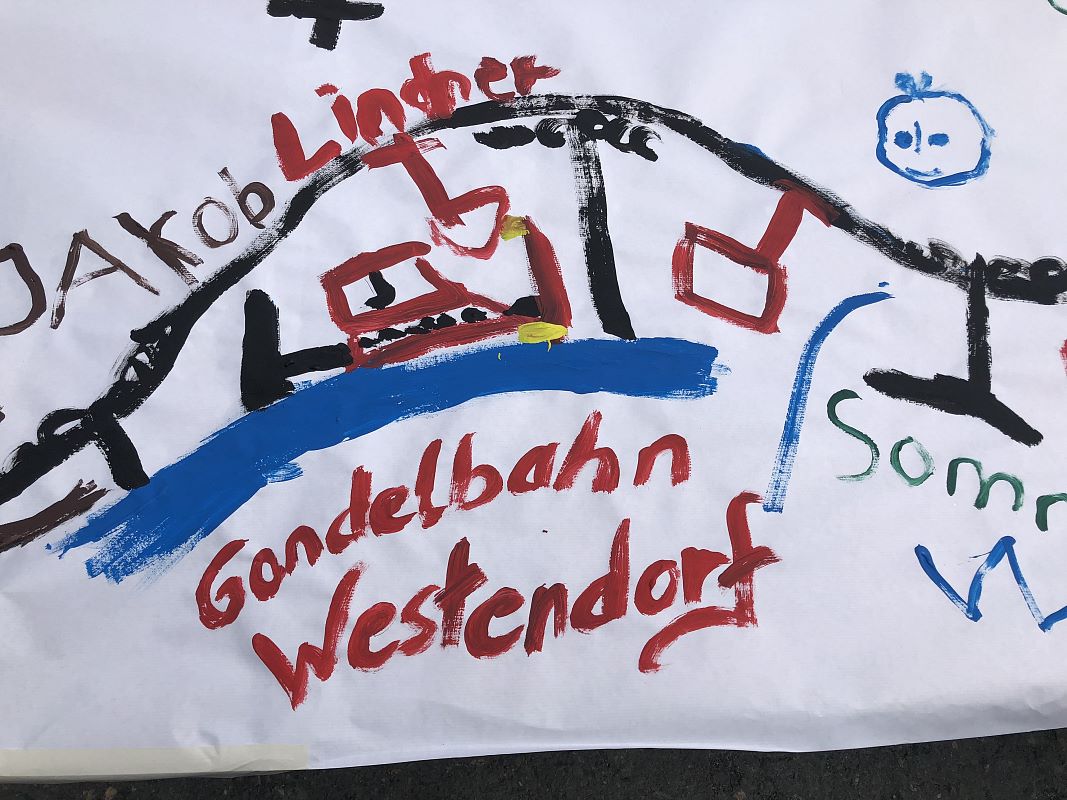 JAkob
Gondelbahn
Westendorf
Somm
W